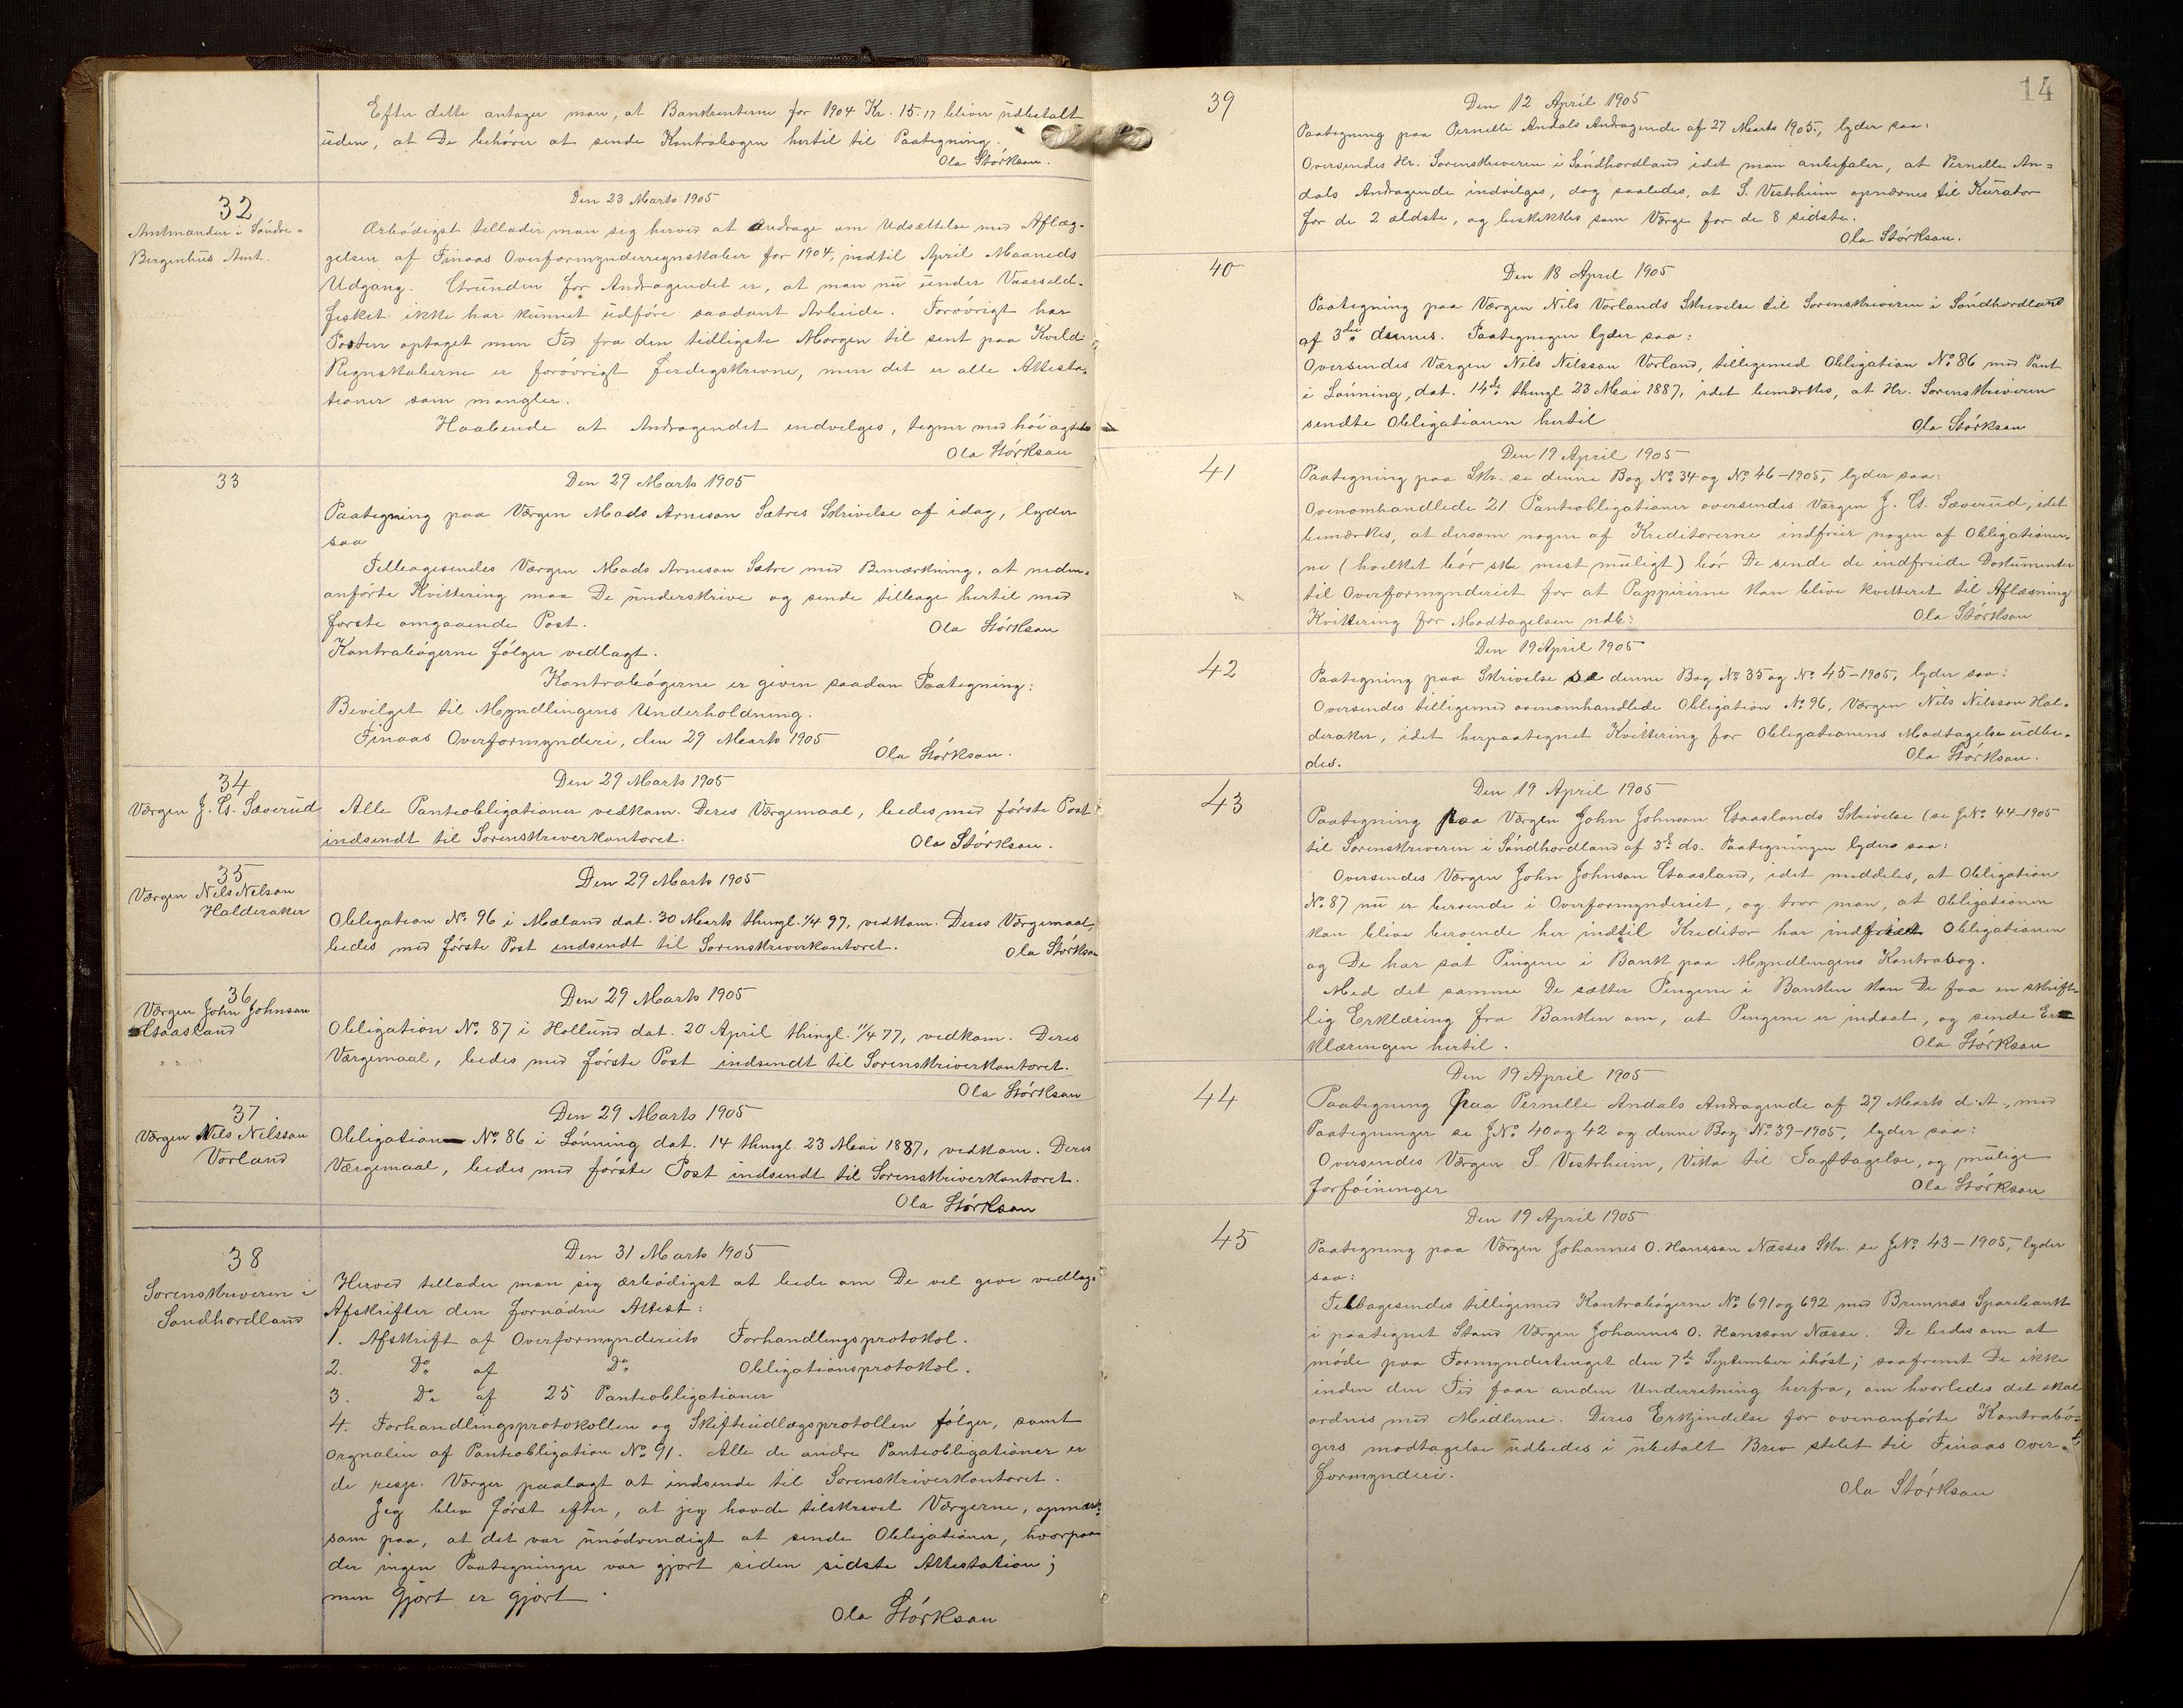 Efter dette antager man, at Bankrenterne for 1904 Kr. 15.17 bliver udbetalt
uden, at De behöver at sende Kontrabogen hertil til Paategning.
Ola Störkson.
32
Amtmanden i Söndre-
Bergenhus Amt.
Den 23 Marts 1905
Ærbödigst tillader man sig herved at Andrage om Udsættelse med Aflæg-
gelsen af Finaas Overformynderregnskaber for 1904, indtil April Maaneds
Udgang. Grunden for Andragendet er, at man nu under Vaarsild-
fisket ikke har kunnet udföre saadant Arbeide. Forövrigt har
Posten optaget min Tid fra den tidligste Morgen til sent paa Kveld
Regnskaberne er forövrigt ferdigskrevne, men det er alle Attesta-
tioner som mangler.
Haabende at Andragendet indvilges, tegner med höiagtelse
Ola Störkson
33
Den 29 Marts 1905
Paategning paa Værgen Mads Arneson Sætres Skrivelse af idag, lyder
saa
Tilbagesendes Værgen Mads Arneson Sætre med Bemærkning, at neden-
anförte Kvittering maa De underskrive og sende tilbage hertil med
förste omgaaende Post.
Ola Störkson
Kontrabögerne fölger vedlagt.
Kontrabögerne er given saadan Paategning:
Bevilget til Myndlingens Underholdning.
Finaas Overformynderi, den 29 Marts 1905
Ola Störkson.
34
Værgen J. G. Sæverud
Den 29 Marts 1905
Alle Panteobligationer vedkom. Deres Værgemaal, bedes med förste Post
indsendt til Sorenskriverkontoret.
Ola Störkson.
35
Værgen Nils Nelson
Halderaker
Den 29 Marts 1905
Obligation No. 96 i Mæland dat. 30 Marts thingl. 1/4 97, vedkom. Deres Værgemaal,
bedes med förste Post indsendt til Sorenskriverkontoret.
Ola Störkson
36
Værgen John Johnson
Gaasland
Den 29 Marts 1905
Obligation No. 87 i Hollund dat. 20 April thingl. 11/4 77, vedkom. Deres
Værgemaal, bedes med förste Post indsendt til Sorenskriverkontoret.
Ola Störkson
37
Værgen Nils Nilsson
Vorland
Den 29 Marts 1905
Obligation No. 86 i Lönning dat. 14 thingl. 23 Mai 1887, vedkom. Deres
Værgemaal, bedes med förste Post indsendt til Sorenskriverkontoret.
Ola Störkson
38
Sorenskriveren i
Söndhordland
Den 31 Marts 1905
Herved tillader man sig ærbödigst at bede om De vil give vedlag-
Afskrifter den fornödne Attest:
1. Afskrift af Overformynderiets Forhandlingsprotokol.
2. Do af Do Obligationsprotokol.
3. Do af 25 Panteobligationer
4. Forhandlingsprotokollen og Skifteudlægsprotollen fölger, samt
Orgnalen af Panteobligation No. 91. Alle de andre Panteobligationer er
de resp. Værger paalagt at indsende til Sorenskriverkontoret.
Jeg blev först efter, at jeg havde tilskrevet Værgerne, opmærk-
som paa, at det var unödvendigt at sende Obligationer, hvorpaa
der ingen Paategninger var gjort siden sidste Attestation;
men gjort er gjort.
Ola Störkson
14
39
Den 12 April 1905
Paategning paa Pernelle Andals Andragende af 27 Marts 1905, lyder saa:
Oversendes Hr. Sorenskriveren i Söndhordland idet man anbefaler, at Pernelle An-
dals Andragende indvilges, dog saaledes, at S. Vestrheim opnævnes til Kurator
for de 2 ældste, og beskikkes som Værge for de 8 sidste.
Ola Störkson.
40
Den 18 April 1905
Paategning paa Værgen Nils Vorlands Skrivelse til Sorenskriveren i Söndhordland
af 3die dennes. Paategningen lyder saa:
Oversendes Værgen Nils Nilsson Vorland, tilligemed Obligation No. 86 med Pant
i Lönning, dat. 14de thingl 23 Mai 1887, idet bemærkes, at Hr. Sorenskriveren
sendte Obligationen hertil
Ola Störkson
41
Den 19 April 1905
Paategning paa Skr. se denne Bog No. 34 og No. 46-1905, lyder saa:
Ovenomhandlede 21 Panteobligationer oversendes Værgen J. G. Sæverud, idet
bemærkes, at dersom nogen af Kreditorerne indfrier nogen af Obligationer-
ne (hvilket bör ske mest muligt) bör De sende de indfriede Dokumenter
til Overformynderiet for at Pappirerne kan blive kvitteret til Aflæsning
Kvittering for Modtagelsen udb:
Ola Störkson
42
Den 19 April 1905
Paategning paa Skrivelse se denne Bog No. 35 og No. 45-1905, lyder saa:
Oversendes tilligemed ovenomhandlede Obligation No. 96, Værgen Nils Nilsson Hal-
deraker, idet herpaategnet Kvittering for Obligationens Modtagelse udbe-
des.
Ola Störkson.
43
Den 19 April 1905
Paategning paa Værgen John Johnson Gaaslands Skrivelse (se J.No. 44-1905
til Sorenskriveren i Söndhordland af 3de ds. Paategningen lyder saa:
Oversendes Værgen John Johnson Gaasland, idet meddeles, at Obligation
No. 87 nu er beroende i Overformynderiet, og tror man, at Obligationen
kan blive beroende her indtil Kreditor har indfriet Obligationen
og De har sat Pengene i Bank paa Myndlingens Kontrabog.
Med det samme De sætter Pengene i Banken kan De faa en skrift-
lig Erklæring fra Banken om, at Pengene er indsat, og sende Er-
klæringen hertil.
Ola Störkson
44
Den 19 April 1905
Paategning paa Pernelle Andals Andragende af 27 Marts d. A., med
Paategninger se J.No. 40 og 42 og denne Bog No. 39-1905, lyder saa:
Oversendes Værgen S. Vestrheim, Vika til Iagttagelse, og mulige
forföininger
Ola Störkson
45
Den 19 April 1905
Paategning paa Værgen Johannes O. Hansson Næsses Skr. se J.No. 43-1905, lyder
saa:
Tilbagesendes tilligemed Kontrabögerne No. 691 og 692 med Bremnæs Sparebank
i paategnet Stand Værgen Johannes O. Hansson Næsse. De bedes om at
möde paa Formyndertinget den 7de September ihöst; saafremt De ikke
inden den Tid faar anden Underretning herfra, om hvorledes det skal
ordnes med Midlerne. Deres Erkjendelse for ovenanförte Kontrabö-
gers modtagelse udbedes i ubetalt Brev stilet til Finaas Over-
formynderi.
Ola Störkson